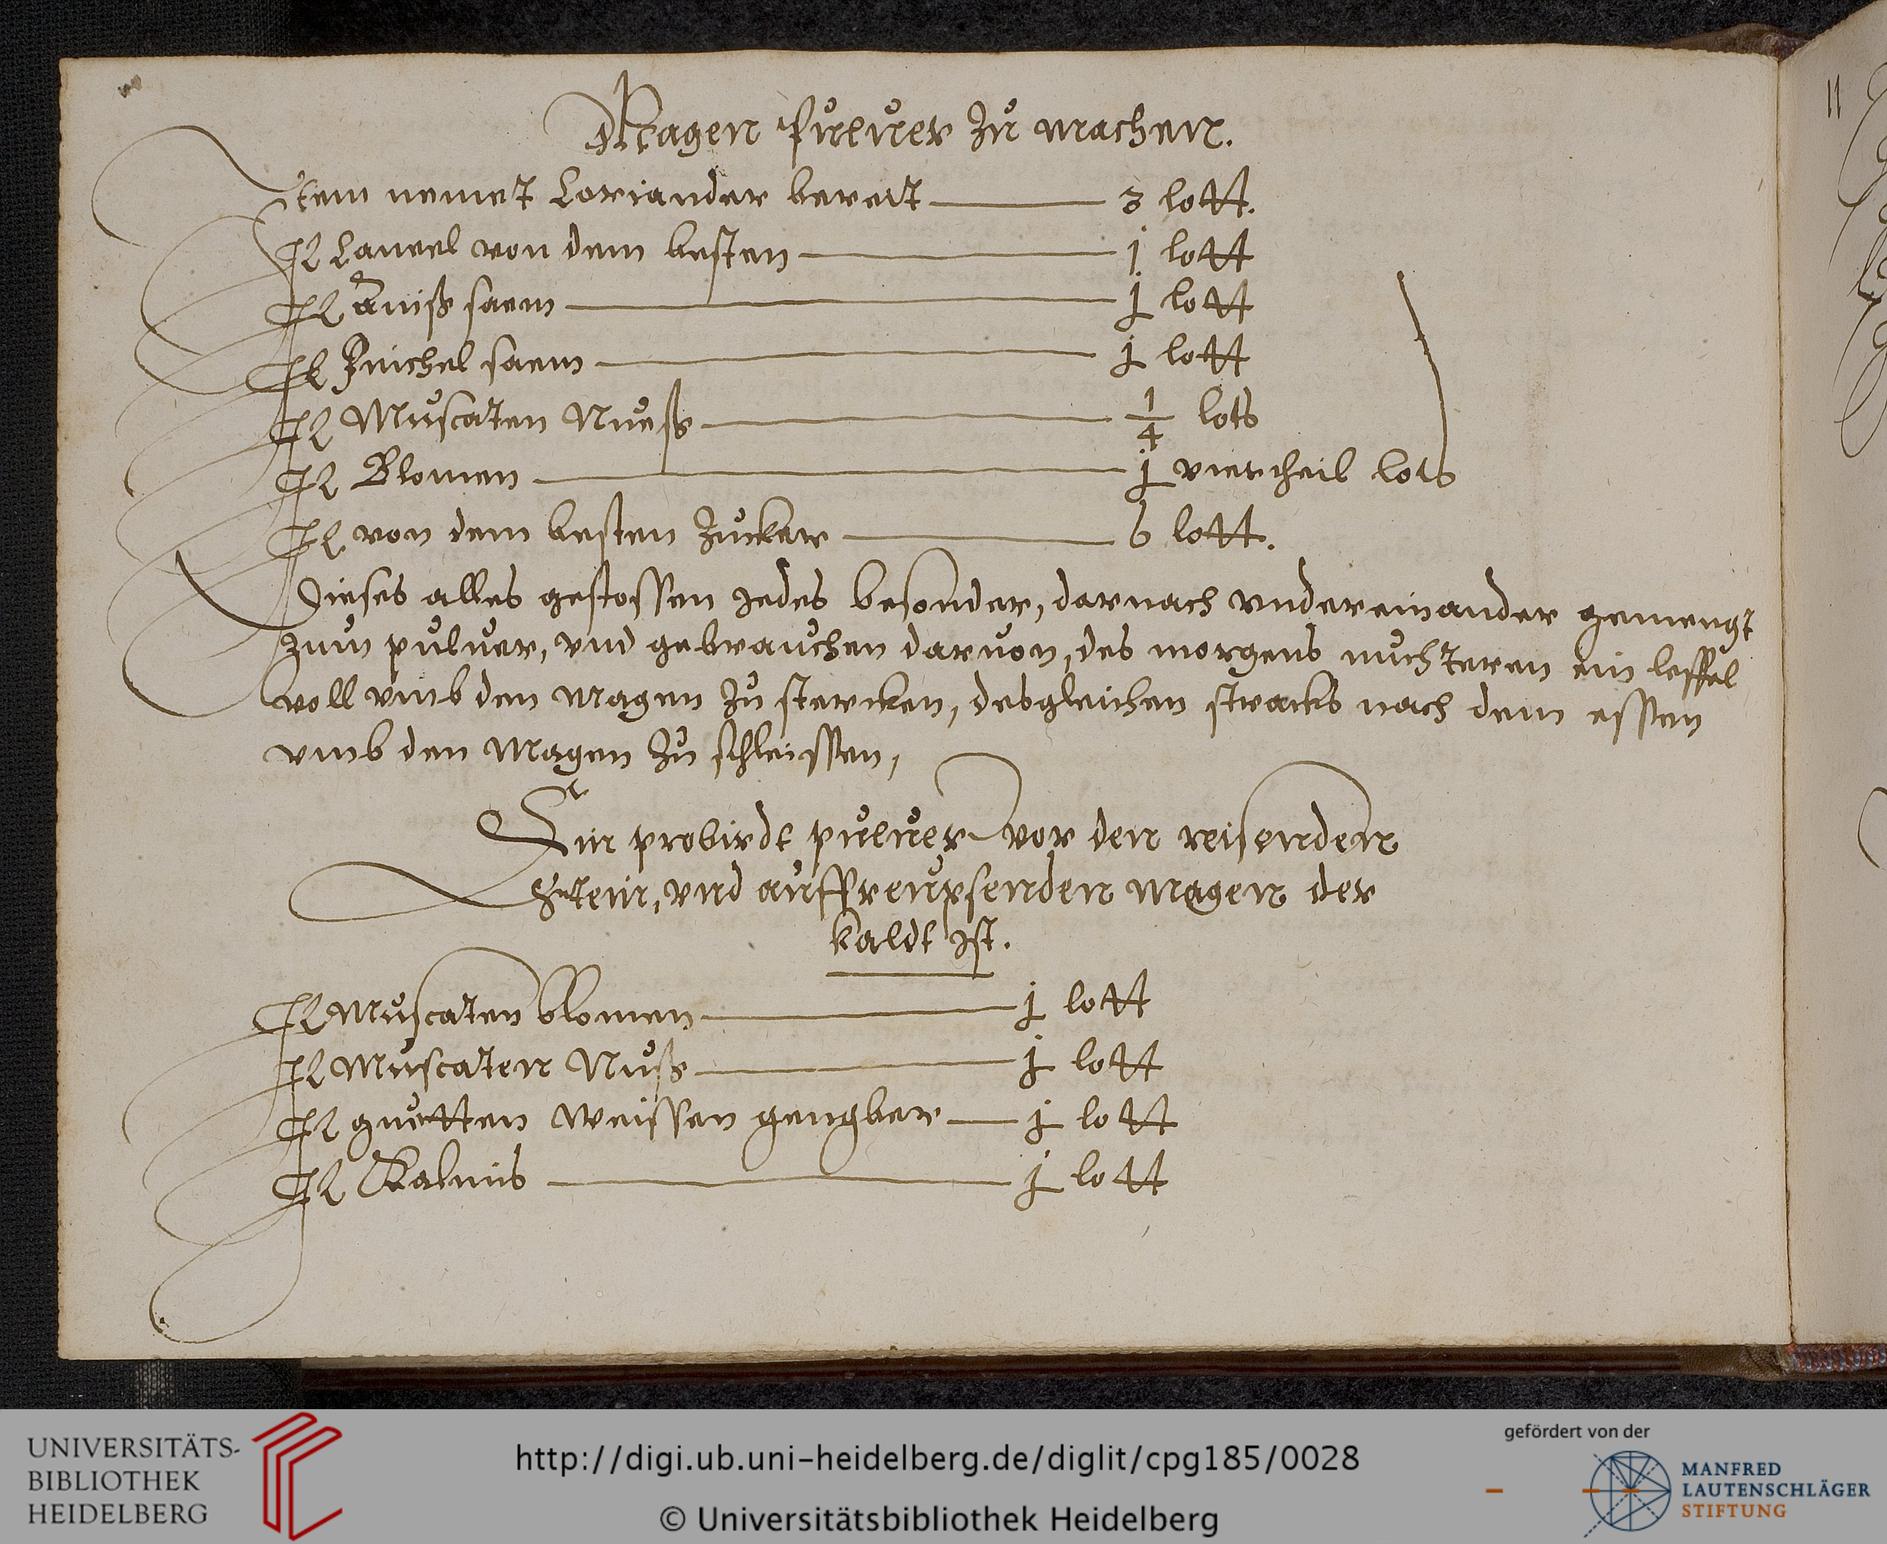 Magen Puluer Zu machen.
Item nemet Coriander bereit 3 lott.
It Caneel von dem besten j lott
It Aniß saem j lott
It Finchel saem j lott
It Muscaten Nueß 1/4 lots
It Blomen j viertheil lots
It von dem besten Zucker 6 lott.
Dieses alles gestossen iedes besonder, darnach vndereinander gemengt
zum puluer, vnd gebrauchen daruon, des morgens nuchteren ein leffel
voll vmb den Magen zu stercken, desgleichen stracks nach dem essen
vmb den Magen zu schleissen,
Ein probirdt puluer vor den reisenden
Stein, vnd auffreupsenden magen der
kaldt ist.
It Muscaten blomen j lott
It Muscaten Nuß j lott
It guetten weissen gengber j lott
It Kalmis j lott
11
UNIVERSITÄTS-
BIBLIOTHEK
HEIDELBERG
http://digi.ub.uni-heidelberg.de/diglit/cpg185/0028
© Universitätsbibliothek Heidelberg
gefördert von der
MANFRED
LAUTENSCHLÄGER
STIFTUNG